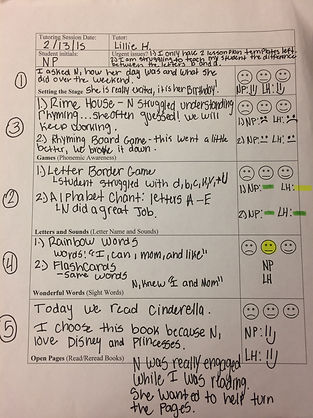 Tutoring Session Date: Tutor:
2/13/15 Lillie H.
Student initials: Urgent issues? 1) I only have 2 lesson plan templates left.
NP 2) I am struggling to teach my student the difference
between the letters b and d.
① I asked N, how her day was and what she
did over the weekend.
Setting the Stage she is really excited, it is her Birthday!
NP: LH:
③ 1) Rime House - N struggled understanding
rhyming... she often guessed! we will
keep working.
2) Rhyming Board Game - this went a little
better, we broke it down.
Games (Phonemic Awareness)
1) NP: LH:
2) NP: LH:
② 1) Letter Border Game
↳ student struggled with d, b, c, H, Y, + U
2) Alphabet Chant: letters A-E
↳ N did a great job.
Letters and Sounds (Letter Name and Sounds)
1) NP: LH:
2) NP: LH:
④ 1) Rainbow Words
words: "I, can, mom, and like"
2) Flashcards
- same words N, knew "I and Mom"
Wonderful Words (Sight Words)
NP
LH
⑤ Today we read Cinderella.
I choose this book because N,
love Disney and Princesses.
Open Pages (Read/Reread Books)
NP:
LH:
N was really engaged
while I was reading.
She wanted to help turn
the pages.